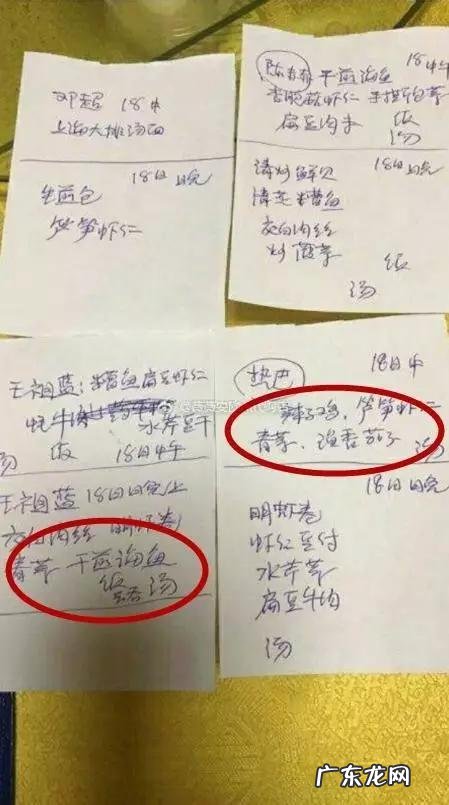 邓超 18中
上海大排汤面
18日晚
生煎包
芦笋虾仁
陈赫 干煎海鱼 18中午
扁豆肉片 饭
汤
清炒鲜贝 18日晚
清蒸糟鱼
茭白肉丝
炒菠菜 饭
汤
王祖蓝:糟鱼扁豆虾仁
水芹豆干
汤 饭 18日中午
王祖蓝 18日晚上
茭白肉丝 明虾卷
青菜 干煎海鱼
饭 汤
热巴 18日中
辣子鸡、芦笋虾仁
青菜、鱼香茄子 汤
18日晚
明虾卷
虾仁豆付
水芹菜
扁豆牛肉
汤
广东龙网